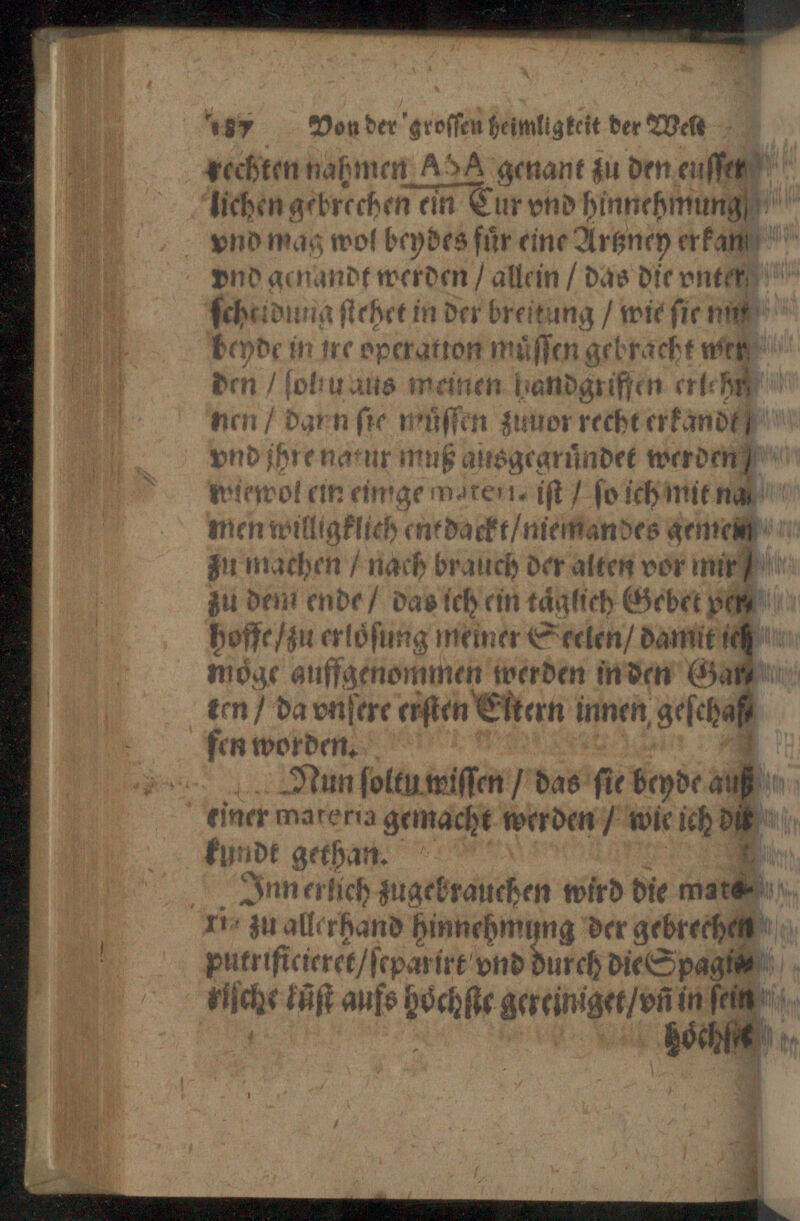 187 Von der groſſen heimligkeit der Welt
rechten nahmen ASA genant zu den euſſer
lichen gebrechen ein Cur vnd hinnehmung/
vnd mag wol beydes fuͤr eine Artzney erkant
vnd genandt werden / allein / das die vnter
ſcheidung ſtehet in der breitung / wie ſie mit
beyde in ire operation muͤſſen gebracht wer
den / ſoltu aus meinen handgriffen erlehr
nen / dann ſie muͤſſen zuuor recht erkandt /
vnd jhre natur muß ausgegruͤndet werden /
wiewol ein einige materia iſt / ſo ich mit na
men willigklich entdackt / niemandes gemein
zu machen / nach brauch der alten vor mir /
zu dem ende / das ich ein taͤglich Gebet per
hoffe / zu erloͤſung meiner Seelen / damit ich
moͤge auffgenommen werden in den Gar
ten / da vnſere erſten Eltern innen geſchaf
fen worden.
Nun ſoltu wiſſen / das ſie beyde auß
einer materia gemacht werden / wie ich dir
kundt gethan.
Innerlich zugebrauchen wird die mate
ri zu allerhand hinnehmung der gebrechen
putrificieret / ſeparirt vnd durch die Spagi
riſche kuͤſt aufs hoͤchſte gereiniget / vñ in ſein
hoͤchſte